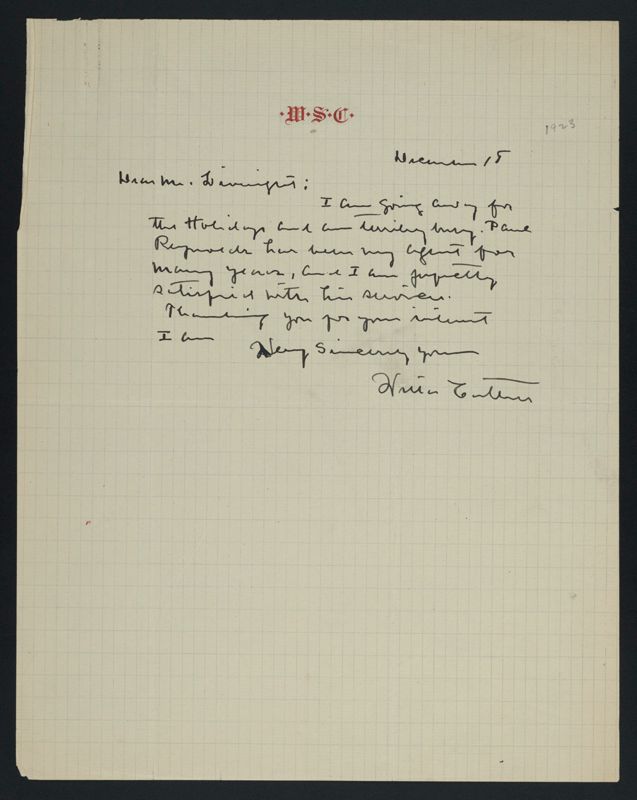 ·W·S·C·
1923
December 18
Dear Mr. Liveright:
I am going away for
the Holidays and am terribly busy. Paul
Reynolds has been my agent for
many years, and I am perfectly
satisfied with his services.
Thanking you for your interest
I am Very Sincerely yours
Willa Cather